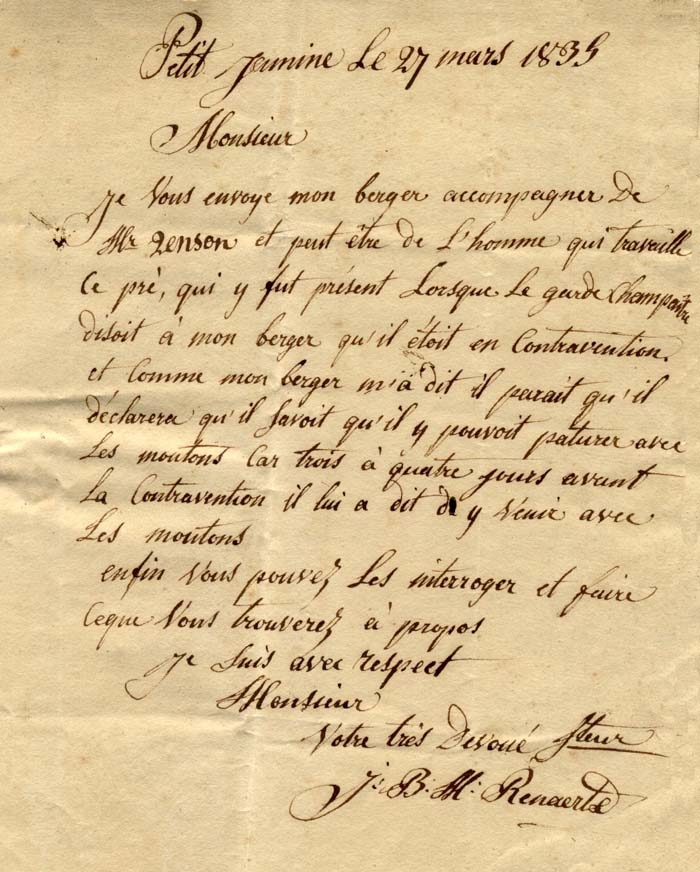 Petit Jamine Le 27 mars 1835
Monsieur
Je Vous envoye mon berger accompagner De
Mr Zenson et peut être de L'homme qui travaille
Ce pré, qui y fut présent Lorsque Le garde Champêtre
disoit à mon berger qu'il étoit en Contravention.
et Comme mon berger m'a dit il parait qu'il
déclarera qu'il Savoit qu'il y pouvoit paturer avec
Les moutons Car trois à quatre jours avant
La Contravention il lui a dit d y Venir avec
Les moutons
enfin Vous pouvez Les interroger et faire
Ceque Vous trouverez à propos
Je Suis avec respect
Monsieur
Votre très Devoué Steur
J. B. M. Renaerts